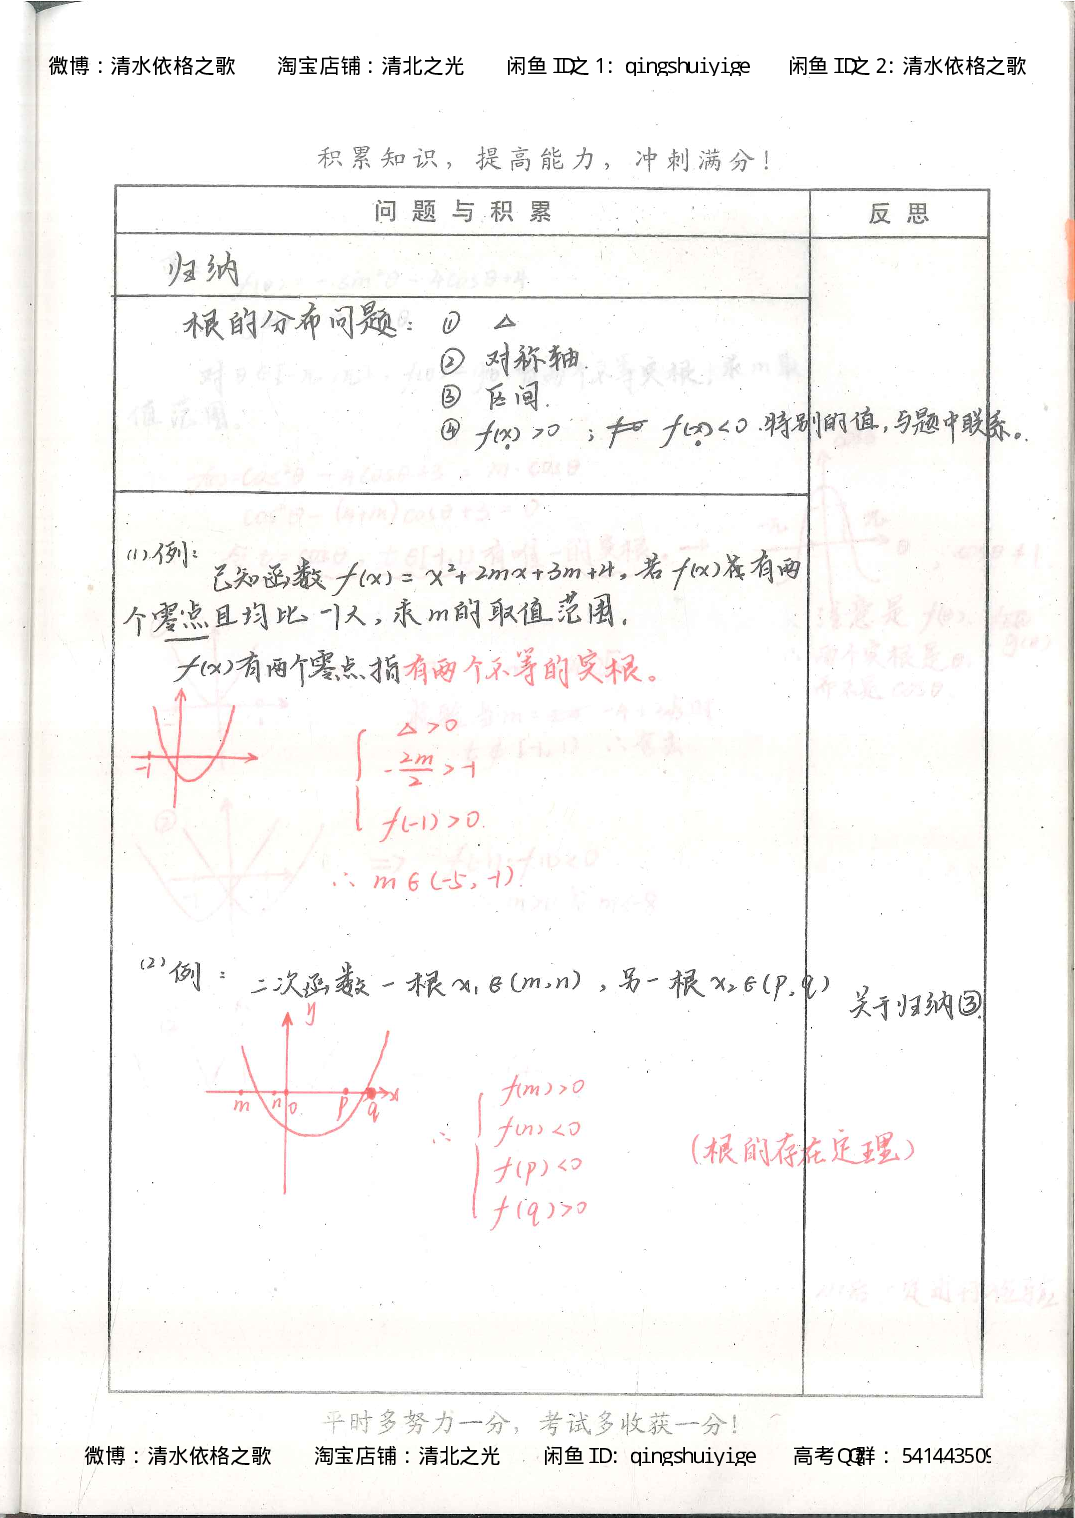 微博：清水依格之歌 淘宝店铺：清北之光 闲鱼 ID之 1：qingshuiyige 闲鱼 ID之 2：清水依格之歌
积累知识，提高能力，冲刺满分！
问题与积累 反思
归纳
根的分布问题：① △
② 对称轴.
③ 区间.
④ f(x)>0 ; f(x)<0 .特别的值,与题中联系。
(1).例:
已知函数 f(x)=x²+2mx+3m+4, 若 f(x)有两
个零点且均比 -1大, 求 m的取值范围.
f(x)有两个零点指有两个不等的实根。
△>0
-2m/2>-1
-1
f(-1)>0.
∴ m∈(-5,-1).
(2)例： 二次函数一根x₁∈(m,n), 另一根x₂∈(p,q) 关于归纳③.
y
m n 0 p q x
f(m)>0
∴ f(n)<0
(根的存在定理)
f(p)<0
f(q)>0
平时多努力一分，考试多收获一分！
微博：清水依格之歌 淘宝店铺：清北之光 闲鱼 ID：qingshuiyige 高考QQ群：541443509